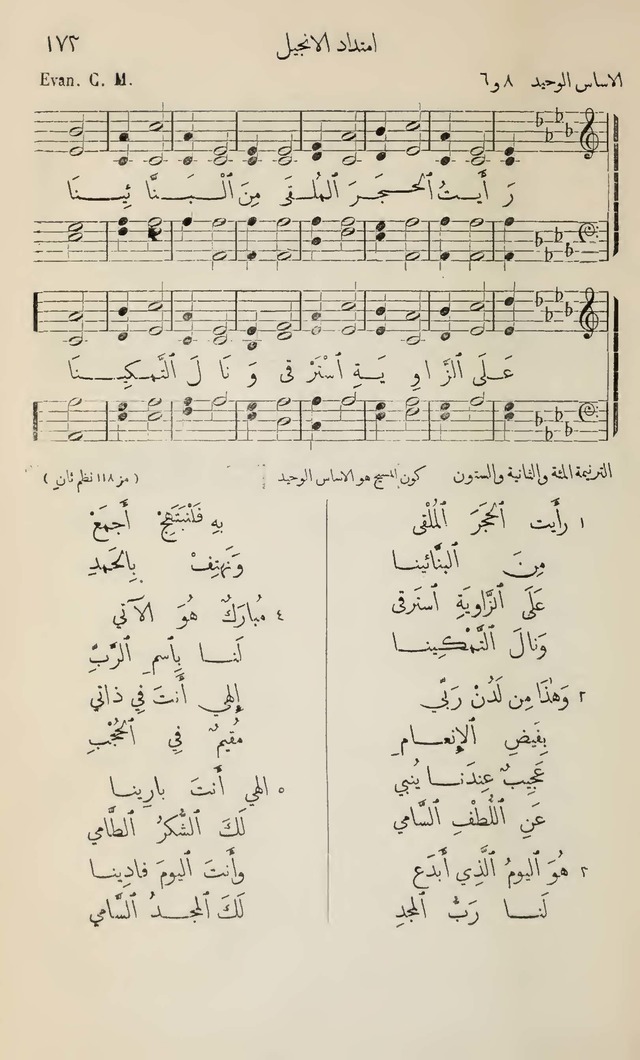 امتداد الانجيل ١٧٣
الاساس الوحيد ٨ و ٦ Evan. C. M.
رَ أَيـتُ ٱلْحـجَـرَ ٱلمُلـقَى مِنَ ٱلْـبَـنَّا ئِيـنَـا
عَـلَى ٱلزَّ اوِ يَـةِ ٱسْتَرْ قى وَ نَا لَ ٱلتَّمكِيـنَـا
الترنيمة المئة والثانية والستون كون المسيح هو الاساس الوحيد ( مز ١١٨ نظم ثانٍ )
١ رأَيت ٱلحَجَرَ ٱلمُلْقى
مِنَ ٱلبنَّائينـا
عَلَى ٱلزَّاويَةِ ٱسترقى
وَنالَ ٱلتَّمْكِينـا
٢ وَهٰذَا مِن لَدُنْ رَبِّي
بِفَيضِ ٱلإِنعـامِ
عَجِيبٌ عِندَنـا يُنبي
عَنِ ٱللُّطْفِ ٱلسَّامي
٣ هُوَ ٱليومُ ٱلَّذِي أَبدَع
لَنـا رَبُّ ٱلمجدِ
بِهِ فَلْنَبتَهِجْ أَجمَعْ
وَنَهتِفْ بِٱلحَمدِ
٤ مُبارَكٌ هُوَ ٱلآتي
لَنـا بِٱسمِ ٱلرَّبِّ
إِلهي أَنتَ فِي ذاتي
مُقِيمٌ فِي ٱلحُجْبِ
٥ الهي أَنتَ بارِينـا
لَكَ ٱلشُّكرُ ٱلطَّامي
وأَنتَ ٱليومَ فادِينـا
لَكَ ٱلمجـدُ ٱلسَّامي